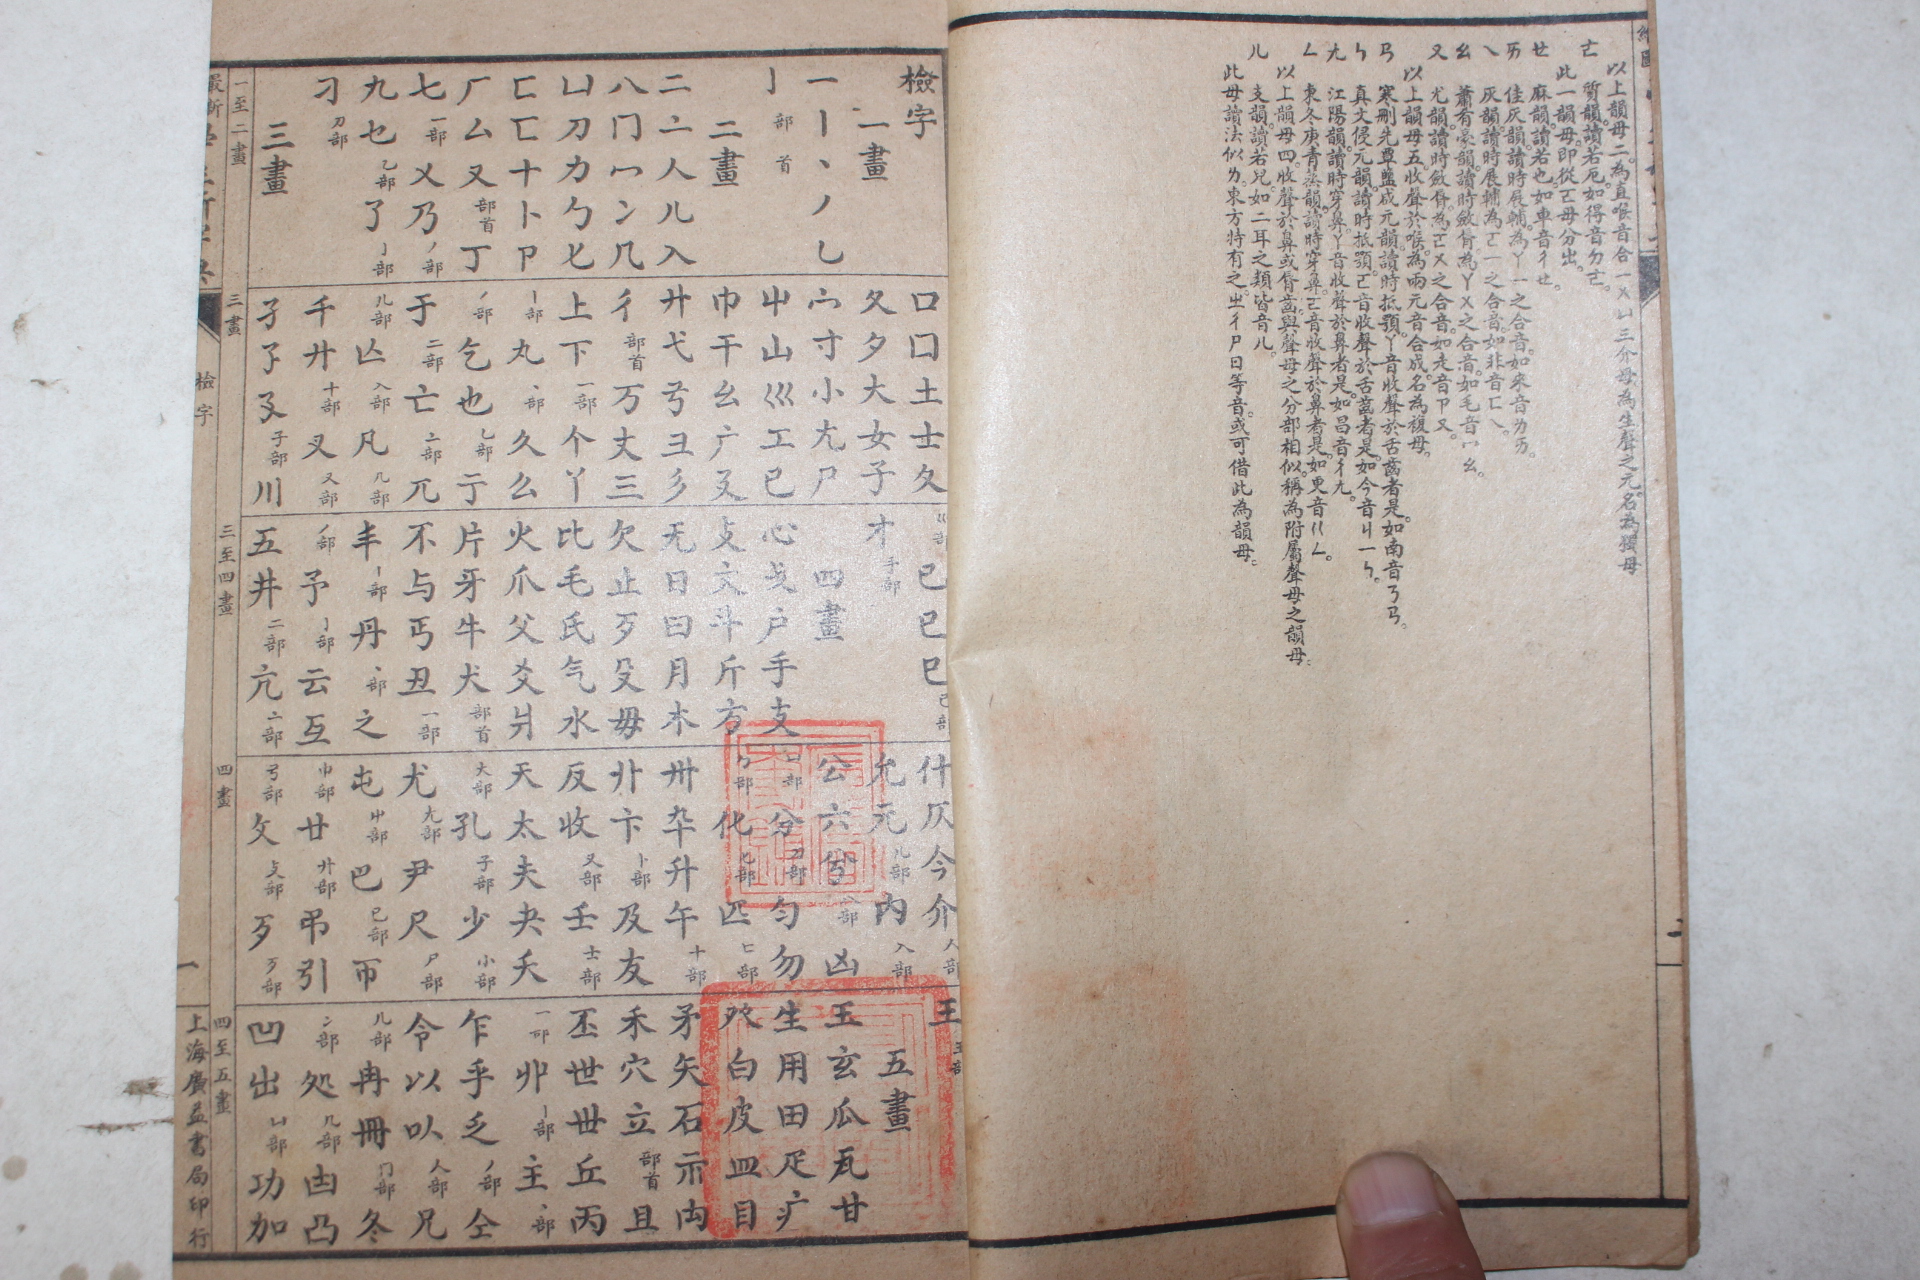 以上韻母二。為直喉音。合一ㄨㄩ三介母。為生聲之元。名為獨母
ㄜ 質韻。讀若厄。如得音ㄉㄜ。
此一韻母。即從ㄛ母分出。
ㄝ 麻韻。讀若也。如車音ㄔㄝ。
ㄞ 佳灰韻。讀時展輔。為ㄚ一之合音。如來音ㄌㄞ。
ㄟ 灰韻。讀時展輔。為ㄛ一之合音。如非音ㄈㄟ。
ㄠ 蕭肴豪韻。讀時斂脣。為ㄚㄨ之合音。如毛音ㄇㄠ。
ㄡ 尤韻。讀時斂脣。為ㄛㄨ之合音。如走音ㄗㄡ。
以上韻母五。收聲於喉。為兩元音合成。名為複母。
ㄢ 寒刪先覃鹽咸元韻。讀時抵顎。ㄚ音收聲於舌齒者是。如南音ㄋㄢ。
ㄣ 真文侵元韻。讀時抵顎。ㄛ音收聲於舌齒者是。如今音ㄐ一ㄣ。
ㄤ 江陽韻。讀時穿鼻。ㄚ音收聲於鼻者是。如昌音ㄔㄤ。
ㄥ 東冬庚青蒸韻。讀時穿鼻。ㄛ音收聲於鼻者是。如更音ㄍㄥ。
以上韻母四。收聲於鼻或脣齒。與聲母之分部相似。稱為附屬聲母之韻母。
ㄦ 支韻。讀若兒。如二耳之類。皆音ㄦ。
此母讀法。似為東方特有之。ㄓㄔㄕㄖ等音。或可借此為韻母。
二
檢字
一畫
一丨丶丿乚
亅部首
二畫
二亠人儿入
八冂冖冫几
凵刀力勹匕
匚匸十卜卩
厂厶又部首丁
七一部乂乃丿部
九乜乙部了亅部
刁刀部
三畫
口囗土士夂
夊夕大女子
宀寸小尢尸
屮山巛工己
巾干幺广廴
廾弋弓彐彡
彳部首万丈三
上下一部个丫
丨部丸丶部久么
丿部乞也乙部亍
于二部亡亠部兀
儿部亾入部凡几部
千廾十部叉又部
孑孓㞢子部川
巛部已巳己部
才手部
四畫
心戈戶手支
攴文斗斤方
无日曰月木
欠止歹殳毋
比毛氏气水
火爪父爻爿
片牙牛犬部首
不与丐丑一部
丰丨部丹丶部之
丿部予亅部云互
五井二部亢亠部
什仄今介人部
允元儿部內入部
公六兮八部凶
凵部分刀部勻勿
勹部化匕部匹匸部
卅卒升午十部
卝卞卜部及友
反收又部壬士部
天太夫夬夭
大部孔子部少小部
尤尢部尹尺尸部
屯屮部巴己部帀
巾部廿廾部弔引
弓部攵攴部歹歹部
王玉部
五畫
玉玄瓜瓦甘
生用田疋疒
癶白皮皿目
矛矢石示禸
禾穴立部首且
丕世丗丘丙
一部丱丨部主丶部
乍乎乏丿部仝
令以㕥人部兄
儿部冉冊冂部冬
冫部処几部凷凸
凹出凵部功加
一至二畫
三畫
三至四畫
四畫
四至五畫
最新
檢字
一
上海廣益書局印行